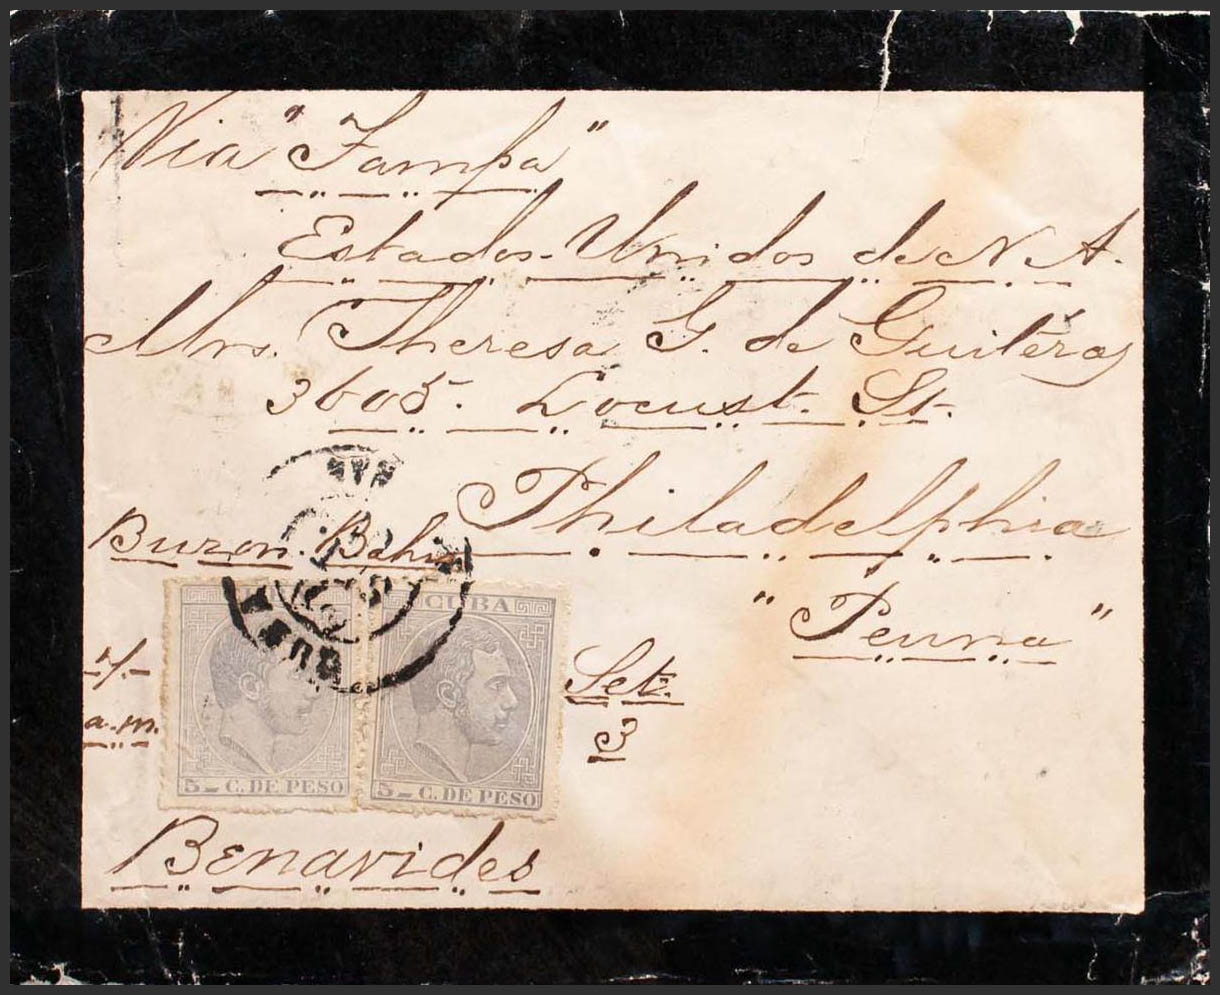 Via "Tampa"
Estados-Unidos de N. A.
Mrs. Theresa G. de Guitéras
3605. Locust. St.
Philadelphia
"Penna"
Buzon. Bahia
CUBA
5 - C. DE PESO
5 - C. DE PESO
7/-
a.m.
Set.
13
Benavides